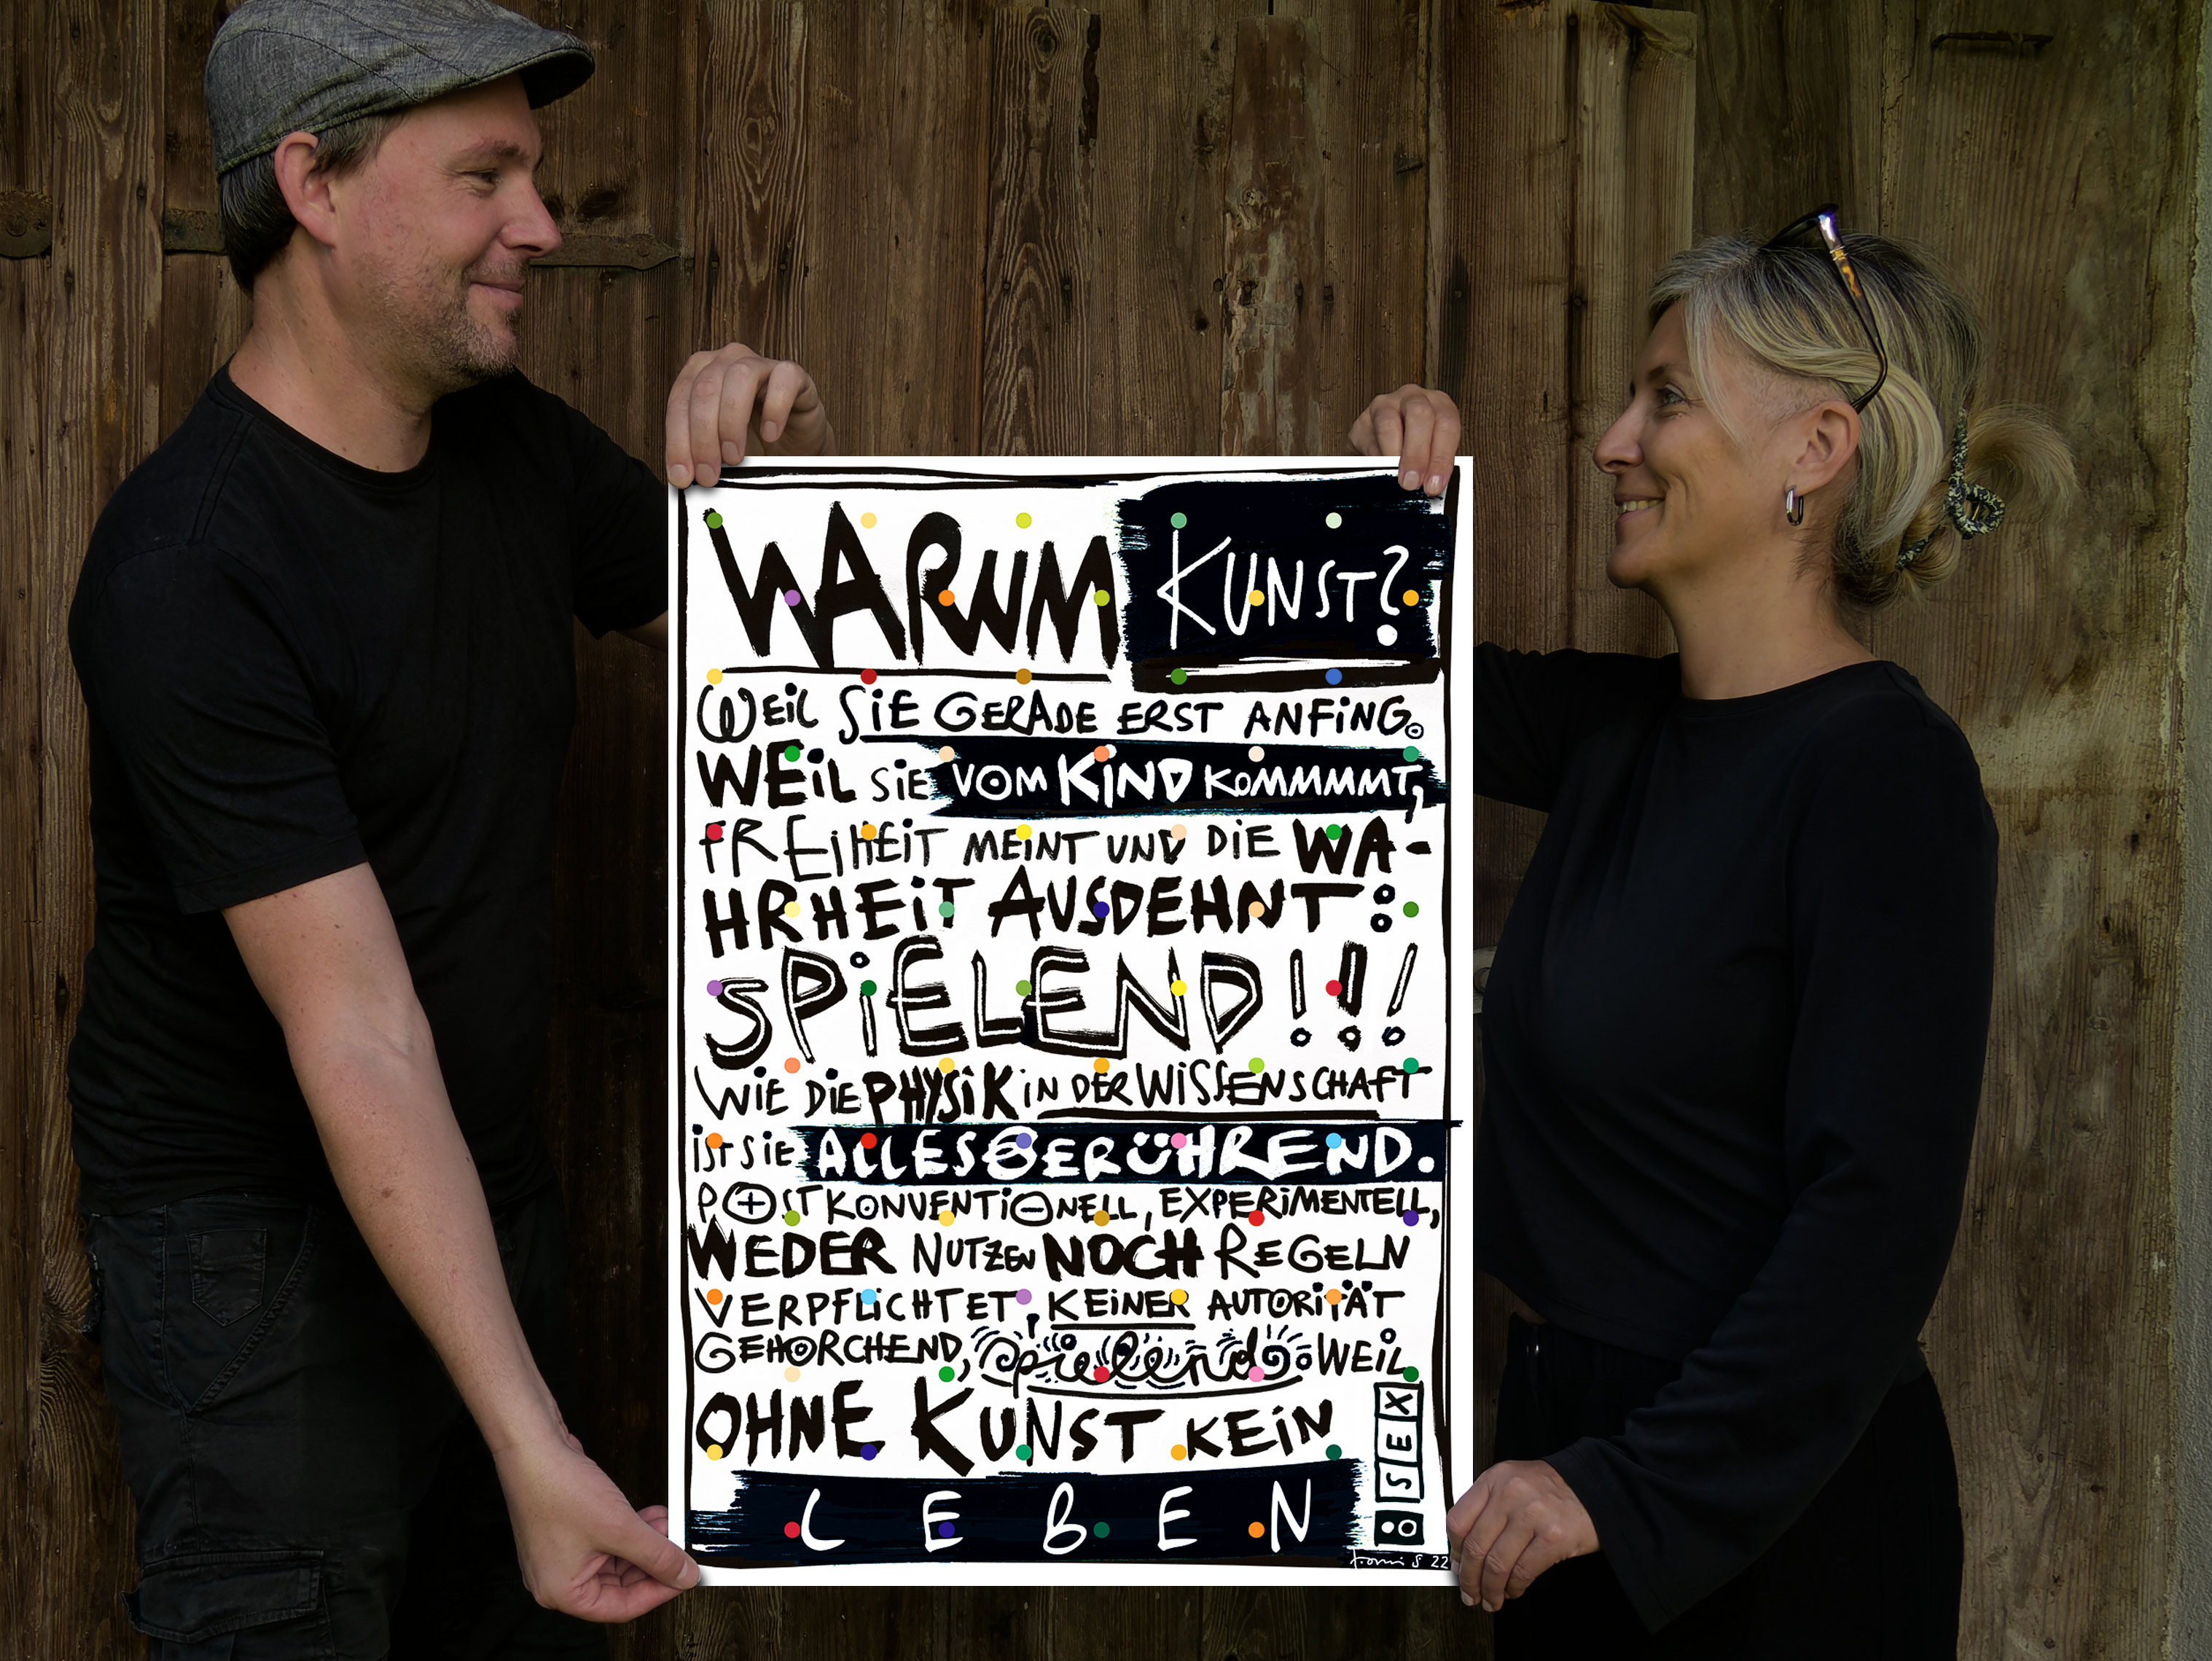 WARUM KUNST?
WEIL SIE GERADE ERST ANFING.
WEIL SIE VOM KIND KOMMMMT,
FREIHEIT MEINT UND DIE WA-
HRHEIT AUSDEHNT:
SPIELEND!!!
WIE DIE PHYSIK IN DER WISSENSCHAFT
IST SIE ALLESBERÜHREND.
POSTKONVENTIONELL, EXPERIMENTELL,
WEDER NUTZEN NOCH REGELN
VERPFLICHTET, KEINER AUTORITÄT
GEHORCHEND, spielend: WEIL
OHNE KUNST KEIN
LEBEN
:SEX
S 22